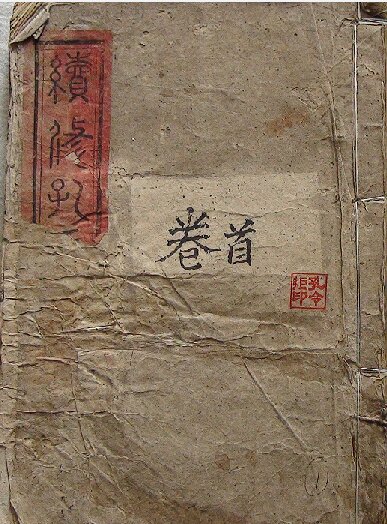 續修孔
卷首
孔令
印